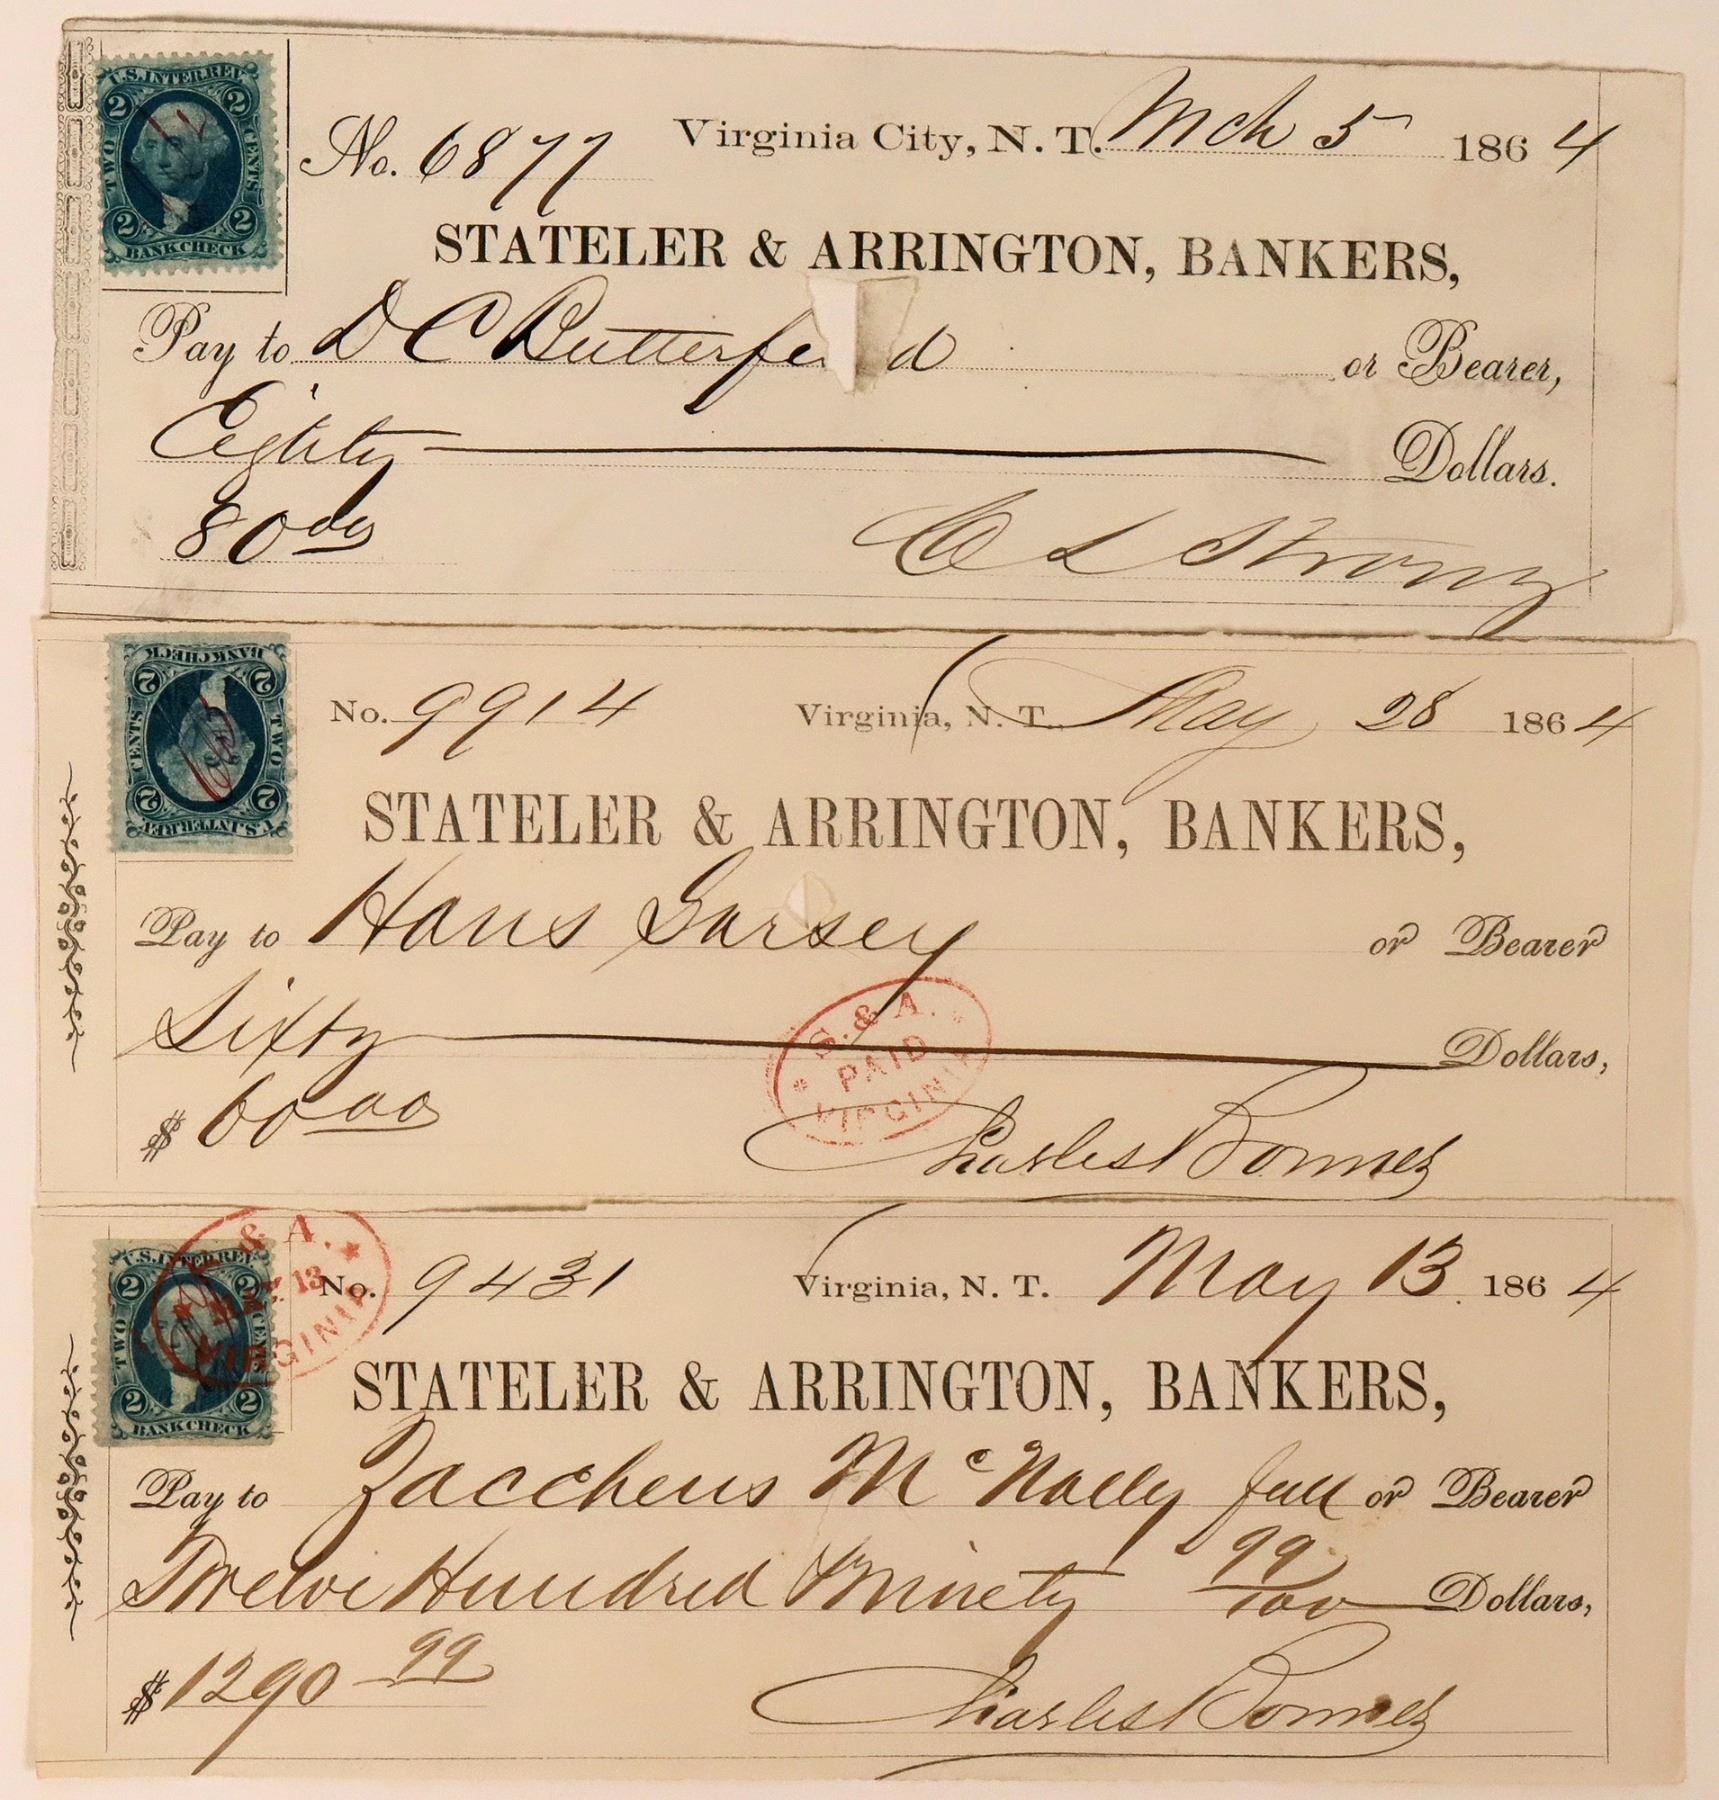 U.S. INTER. REV.
2 2
TWO CENTS
2 2
BANK CHECK
No. 6877 Virginia City, N. T. Mch 5 1864
STATELER & ARRINGTON, BANKERS,
Pay to D C Butterfe d or Bearer,
Eighty Dollars.
80 00
C L Strong
U.S. INTER. REV.
2 2
TWO CENTS
2 2
BANK CHECK
No. 9914 Virginia, N. T. May 28 1864
STATELER & ARRINGTON, BANKERS,
Pay to Hans Garsey or Bearer
Sixty Dollars,
$ 60 00
S. & A.
PAID
VIRGINIA
Charles Bonner
U.S. INTER. REV.
2 2
TWO CENTS
2 2
BANK CHECK
& A.
MAY 13
VIRGINIA
No. 9431 Virginia, N. T. May 13 1864
STATELER & ARRINGTON, BANKERS,
Pay to Zaccheus McNally full or Bearer
Twelve Hundred & Ninety 99/100 Dollars,
$ 1290 99
Charles Bonner